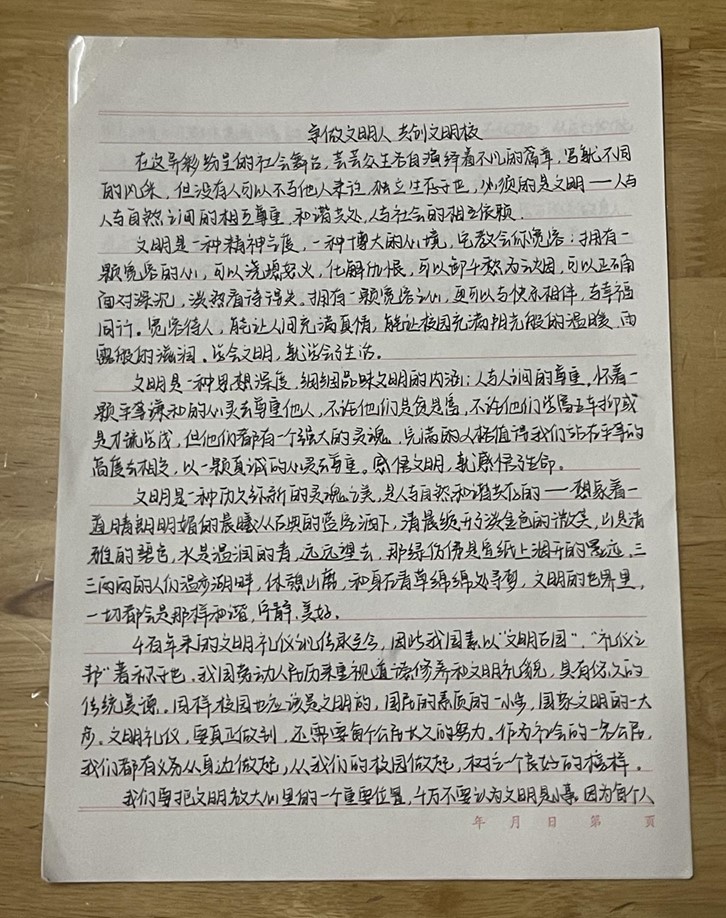 争做文明人 共创文明校
在这异彩纷呈的社会舞台，芸芸众生各自演绎着不凡的篇章，呈就不同
的风采，但没有人可以不与他人来往，独立生存于世，必须的是文明——人与
人与自然之间的相互尊重，和谐共处，人与社会的相互依赖。
文明是一种精神气度，一种博大的心境，它教会你宽容：拥有一
颗宽容的心，可以浇熄怒火，化解仇恨，可以卸千愁为云烟，可以正确
面对深沉，淡然看待得失。拥有一颗宽容之心，更可以与快乐相伴，与幸福
同行。宽容待人，能让人间充满真情，能让校园充满阳光般的温暖，雨
露般的滋润。学会文明，就学会了生活。
文明是一种思想深度，细细品味文明的内涵：人与人之间的尊重，怀着一
颗平等谦和的心灵去尊重他人，不论他们是贫是富，不论他们学富五车抑或
是才疏学浅，但他们都有一个强大的灵魂，完满的人格值得我们站在平等的
高度去相交，以一颗真诚的心灵去尊重。感悟文明，就感悟了生命。
文明是一种历久弥新的灵魂之美，是人与自然和谐共存的——想象着一
道晴朗明媚的晨曦从古典的蓝房洒下，清晨绽开了淡金色的微笑，山是清
雅的碧色，水是温润的青，远远望去，那绿仿佛是宣纸上洇开的墨迹，三
三两两的人们漫步湖畔，休憩山麓，和身在青草绵绵处寻梦，文明的世界里，
一切都会是那样和谐，宁静，美好。
千百年来的文明礼仪沿传承至今，因此我国素以“文明古国”，“礼仪之
邦”著称于世。我国劳动人民历来重视道德修养和文明礼貌，具有悠久的
传统美德。同样校园也应该是文明的，国民的素质的一小步，国家文明的一大
步。文明礼仪，要真正做到，还需要每个公民长久的努力。作为社会的一名公民，
我们都有义务从身边做起，从我们的校园做起，树立一个良好的榜样。
我们要把文明放大心里的一个重要位置，千万不要认为文明是小事。因为每个人
年 月 日 第 页